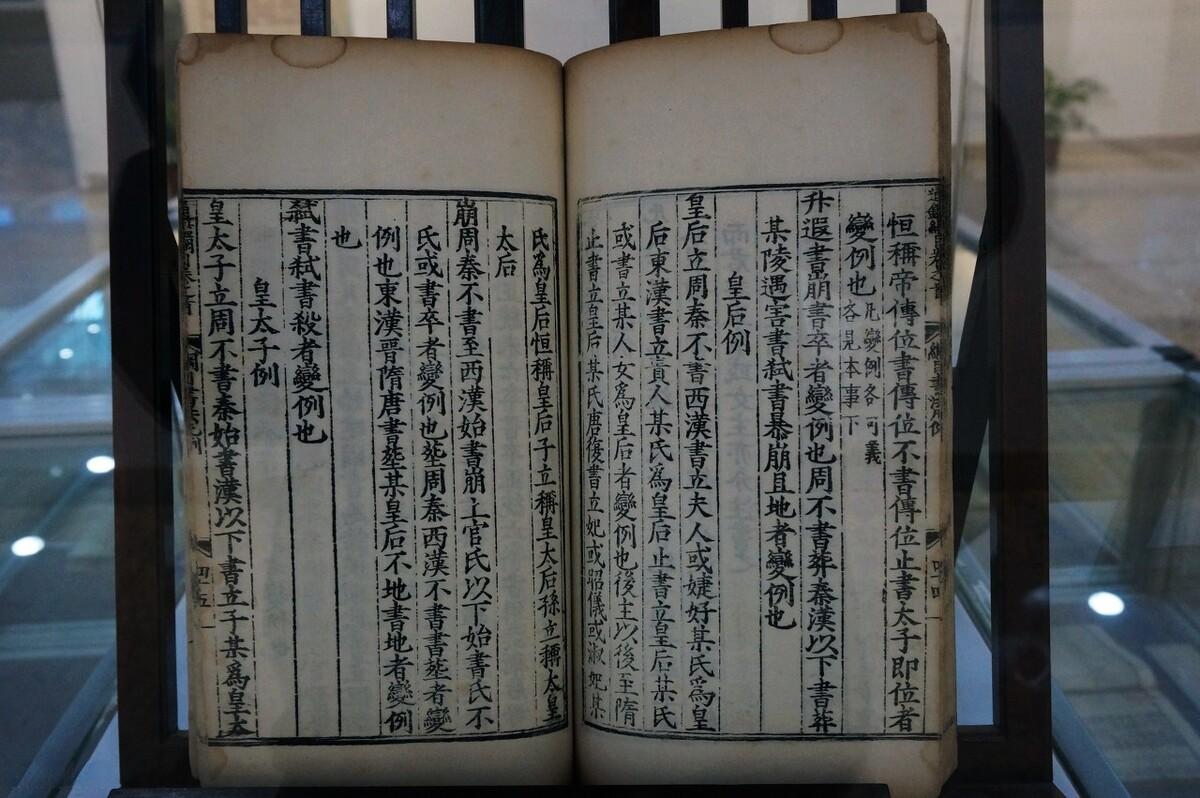 恒稱帝傳位書傳位不書傳位止書太子即位者
變例也凡變例各
各見本事下
升遐書崩書卒者變例也周不書葬秦漢以下書葬
某陵遇害書弑書暴崩且地者變例也
皇后例
皇后立周秦不書西漢書立夫人或婕妤某氏爲皇
后東漢書立貴人某氏爲皇后止書立皇后某氏
或書立某人女爲皇后者變例也後主以後至隋
止書立皇后某氏唐復書立妃或昭儀或淑妃某
氏爲皇后恒稱皇后子立稱皇太后孫立稱太皇
太后
崩周秦不書至西漢始書崩上官氏以下始書氏不
氏或書卒者變例也塟周秦西漢不書書塟者變
例也東漢晉隋唐書塟某皇后不地書地者變例
也
弑書弑書殺者變例也
皇太子例
皇太子立周不書秦始書漢以下書立子某爲皇太